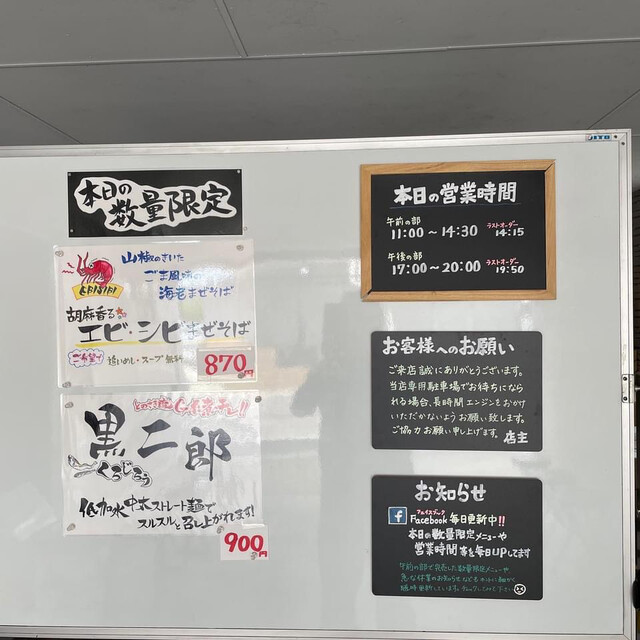 本日の
数量限定
山椒のきいた
ごま風味の
海老まぜそば
EBISIBI
胡麻香る
エビ・シビまぜそば
ご希望で 追いめし・スープ無料
870円
黒二郎
くろじろう
低加水中太ストレート麺で
スルスルと召し上がれます!
900円
JITO
本日の営業時間
午前の部
11:00〜14:30 ラストオーダー 14:15
午後の部
17:00〜20:00 ラストオーダー 19:50
お客様へのお願い
ご来店誠にありがとうございます。
当店専用駐車場でお待ちになら
れる場合、長時間エンジンをおかけ
いただかないようお願い致します。
ご協力お願い申し上げます。 店主
お知らせ
フェイスブック
f Facebook 毎日更新中!!
本日の数量限定メニューや
営業時間等を毎日UPしてます
午前の部で完売した数量限定メニューや
急な休業のお知らせなども
随時更新しています。チェックしてみて下さい